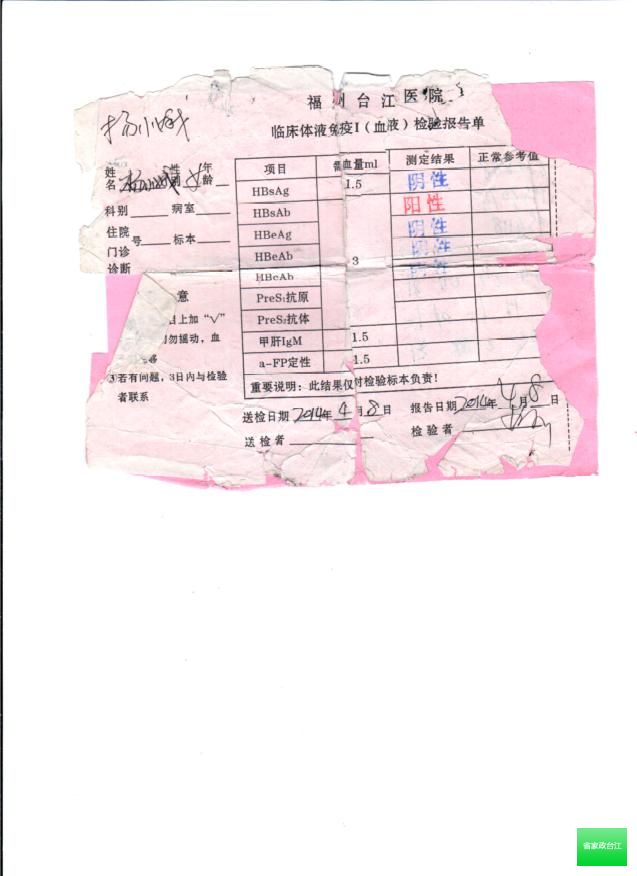 福州台江医院
临床体液免疫I(血液)检验报告单
姓名 性别 女 年龄
科别 病室
住院
门诊 号 标本
诊断
项目 需血量ml 测定结果 正常参考值
HBsAg 1.5 阴性
HBsAb 阳性
HBeAg 阴性
HBeAb 3 阴性
HBcAb 阴性
PreS₁抗原
PreS₂抗体
甲肝IgM 1.5
a-FP定性 1.5
重要说明:此结果仅对检验标本负责!
意
目上加“√”
勿摇动,血
③若有问题,3日内与检验
者联系
送检日期 2014年4月8日 报告日期 2014年4月8日
送检者 检验者
省家政台江